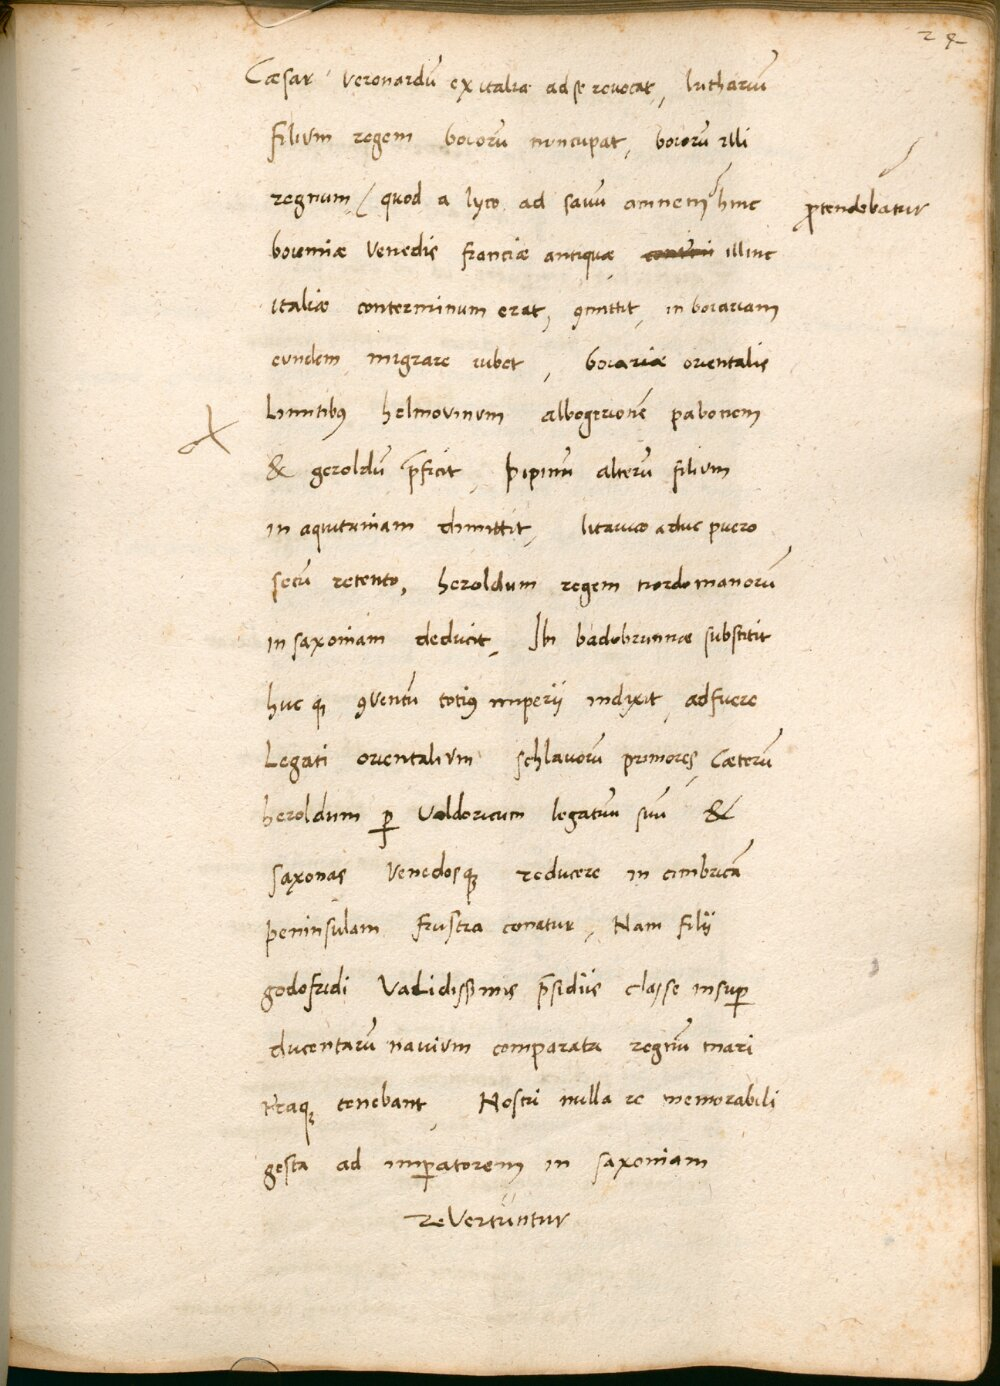 24
Cæsar veronardū ex italia ad se revocat, lutharium
filium regem boiorū nuncupat, boiorū illi
regnum (quod a lyco ad savū amnem hinc protendebatur
boiemiæ venedis franciæ antiquæ illinc
italiæ conterminum erat, 9mittit, in boiariam
eundem migrare iubet, boiariæ orientalis
Limitib9 helmovinum albogerionē pabonem
& geroldū p̄ficit, pipinū alterū filium
in aquitaniam dimittit, litavico aduc puero
secū retento, heroldum regem nordomanorū
in saxoniam deducit, Ibi badobrunnæ substitit
huc q3 9ventū toti9 imperij indixit, adfuere
Legati orientalium schlavorū primores, Cæterū
heroldum ꝑ Valdoricum legatum suū &
saxonas Venedosq3 reducere in cimbricā
peninsulam frustra conatur, Nam filij
godofridi Validissimis p̄sidiis classe insuꝑ
ducentarū navium comparata regnū mari
tʼraq3 tenebant, Nostri nulla re memorabili
gesta ad imꝑatorem in saxoniam
revertuntur